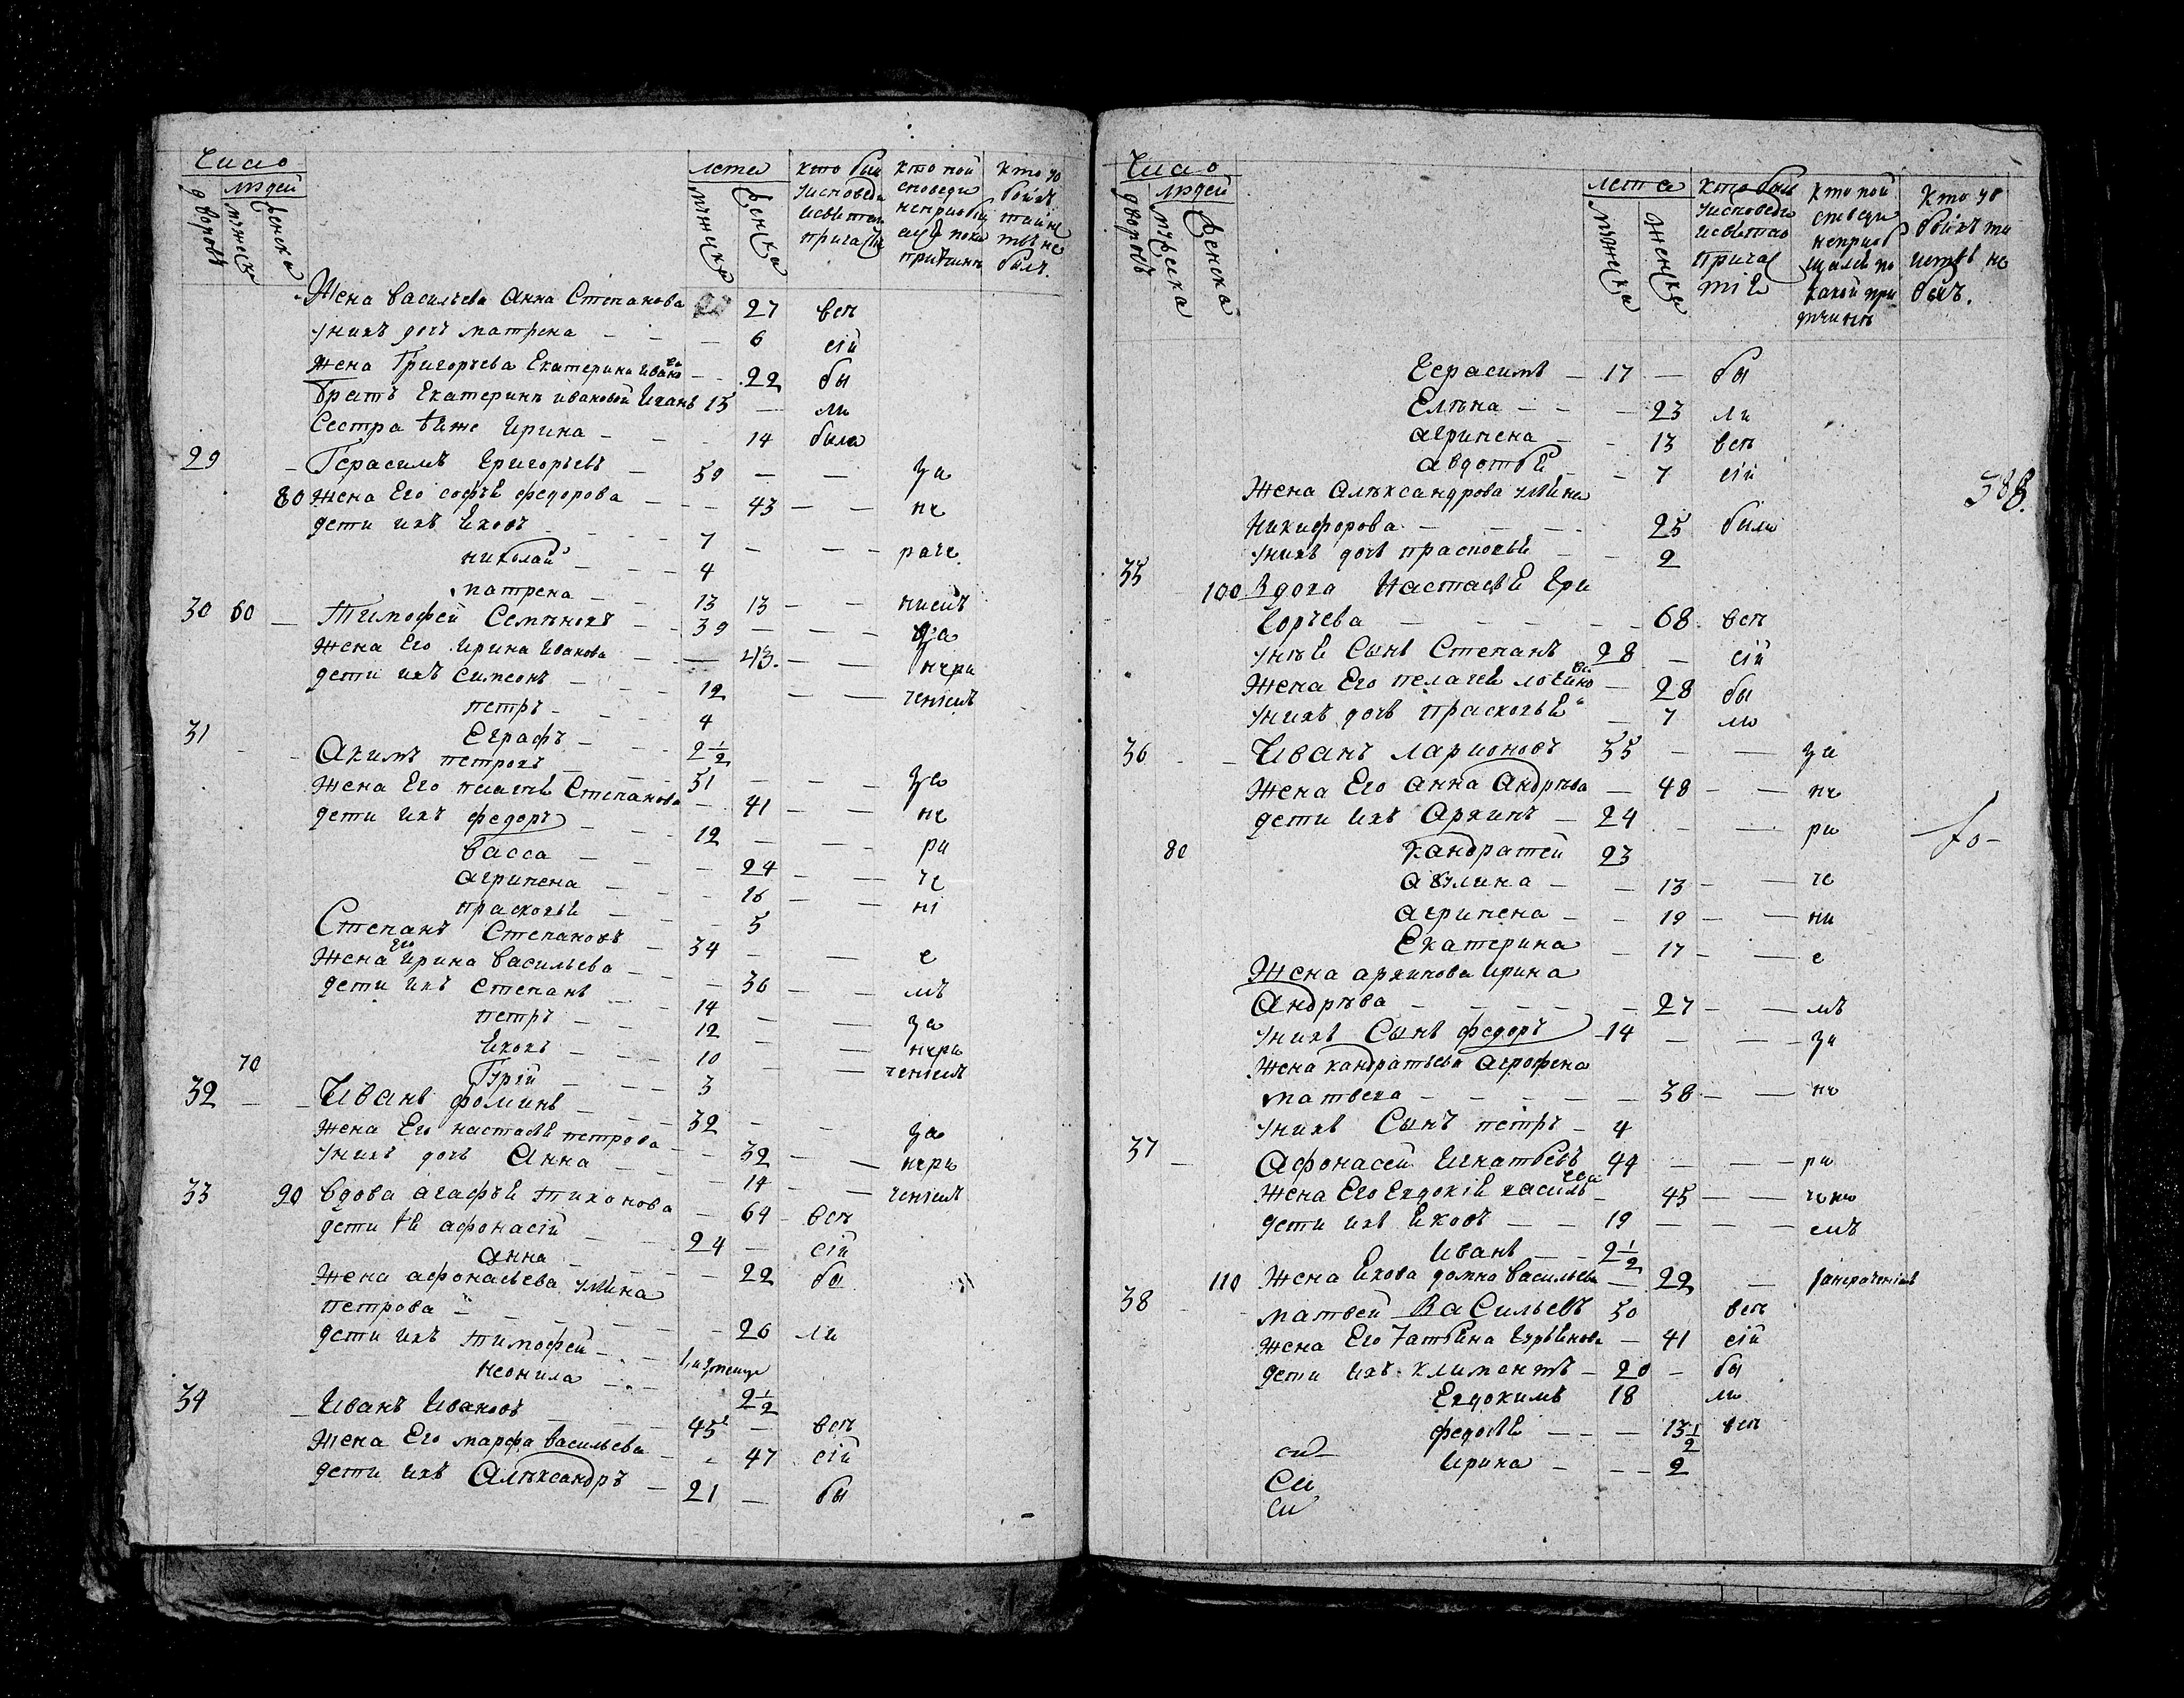 Число
людей
дворовъ
мужеска
женска
лета
мужска
женска
кто был
уисповеди
исвятаго
причастия
кто пой
споведи
неприоб
кто уо
боихъ
тайне
твъ не
былъ.
Жена васильева Анна Степанова 27 всѣ
уних дочь матрена - - 6 сiи
жена Григорьева Екатерина Ивано ва - - 22 бы
братъ Екатерины ивановой Иванъ 15 — ли
Сестра ѣиже Ирина - - 14 была
29 - Герасимъ Григорьевъ - 59 — — за
80 жена Его софья федорова - - 43 — — не
дети ихъ Яковъ - - 7 — - - раче
николай - - - 4
матрена - - 13 13 - — нiемъ
30 60 — Тимофей Семеновъ - - 39 — — за
жена Его Ирина Иванова - — 43. — — нера
дети ихъ Симеонъ - - - 12 — — ченiемъ
петръ - - - 4
Еграфъ - - - 2 1/2
31 - - Акимъ петровъ - - 51 — — за
Жена Его пелагея Степанова - 41 — — не
дети ихъ федоръ - - - 12 — — ра
васса - - - 24 - — че
агрипена - - 16 - — нi
прасковья - - 5
Степанъ Степановъ - 34 — — е
жена Его Ирина васильева - - 36 — — мъ
дети ихъ степанъ - - 14 — — за
петръ - - 12 - — нера
Яковъ - - - 10 — — ченiемъ
70 Гурiй - - - 3
32 — - Иванъ фоминъ - - - 32 - - за
жена Его настасья петрова - - 32 — — нера
уних дочь Анна - - 14 - — ченiемъ
33 90 вдова агафья тихонова - 64 - всѣ
дети ѣя афонасiй - - 24 — сiи
анна - - - 22 бы
Жена афонасьева улияна
петрова - - - - 26 ли
дети ихъ тимофей - - - 1,
неонила - - 2 1/2
34 - Иванъ Ивановъ - - - 45 — всѣ
жена Его марфа васильева - - 47 сiи
дети ихъ Александръ - 21 — бы
Число
людей
дворовъ
мужеска
женска
лета
мужска
женска
кто былъ
уисповеди
исвятаго
причас
тiя
кто пой
споведи
неприоб
щался по
какой при
чины
Кто уо
боихъ та
инствъ не
былъ.
Герасимъ — 17 — бы
Елена - - - 23 ли
агрипена - - 13 всѣ
авдотья - - 7 сiи
388.
Жена Александрова улияна
никифорова - - - 25 были
уних дочь прасковья - - 2
35 100 вдова Настасья Гри
горьева - - - - 68. всѣ
унѣя Сынъ Степанъ 28 - сiи
Жена Его пелагея логино ва — 28 бы
уних дочь прасковья — 7 ли
36 - - Иванъ ларионовъ 55 - — за
Жена Его Анна Андреева — 48 - — не
дети ихъ Архипъ - 24 - — ра
80 кандратей 23
акулина - - 13 - — че
агрипена - - 19 - — ни
Екатерина - 17 - — е
Жена архипова Ирина
Андреева - - - - 27 - — мъ
уних Сынъ федоръ 14 - — за
Жена кандратьева агрофена
матвева - - - - 38 - — не
уних Сынъ петръ - 4
37 — Афонасей Игнатьевъ 44 — — ра
Жена Его Евдокiя василь ева - 45 — — чени
дети ихъ Яковъ — - 19 — — - емъ
Иванъ — - 2 1/2
110 Жена Якова домна васильева — 22 — занерачениемъ
38 - - матвей Васильевъ 50 всѣ
Жена Его Татьяна - 41 сiи
дети ихъ климентъ - 20 - бы
Евдокимъ 18 ли
федосья — - — 13 1/2 всѣ
Ирина - - - 2
си
Си
си